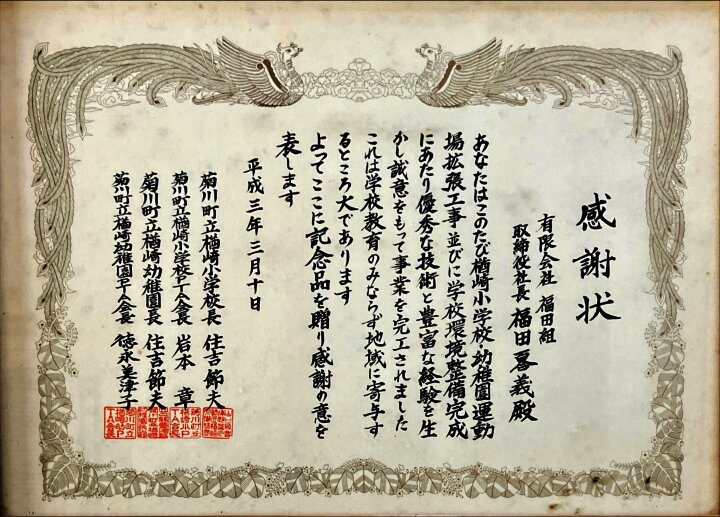 感謝状
有限会社 福田組
取締役社長 福田喜義殿
あなたはこのたび楢崎小学校・幼稚園運動
場拡張工事並びに学校環境整備完成
にあたり優秀な技術と豊富な経験を生
かし誠意をもって事業を完工されました
これは学校教育のみならず地域に寄与す
るところ大であります
よってここに記念品を贈り感謝の意を
表します
平成三年三月十日
菊川町立楢崎小学校長 住吉節夫
菊川町立楢崎小学校PTA会長 岩本 章
菊川町立楢崎幼稚園長 住吉節夫
菊川町立楢崎幼稚園PTA会長 徳永美津子